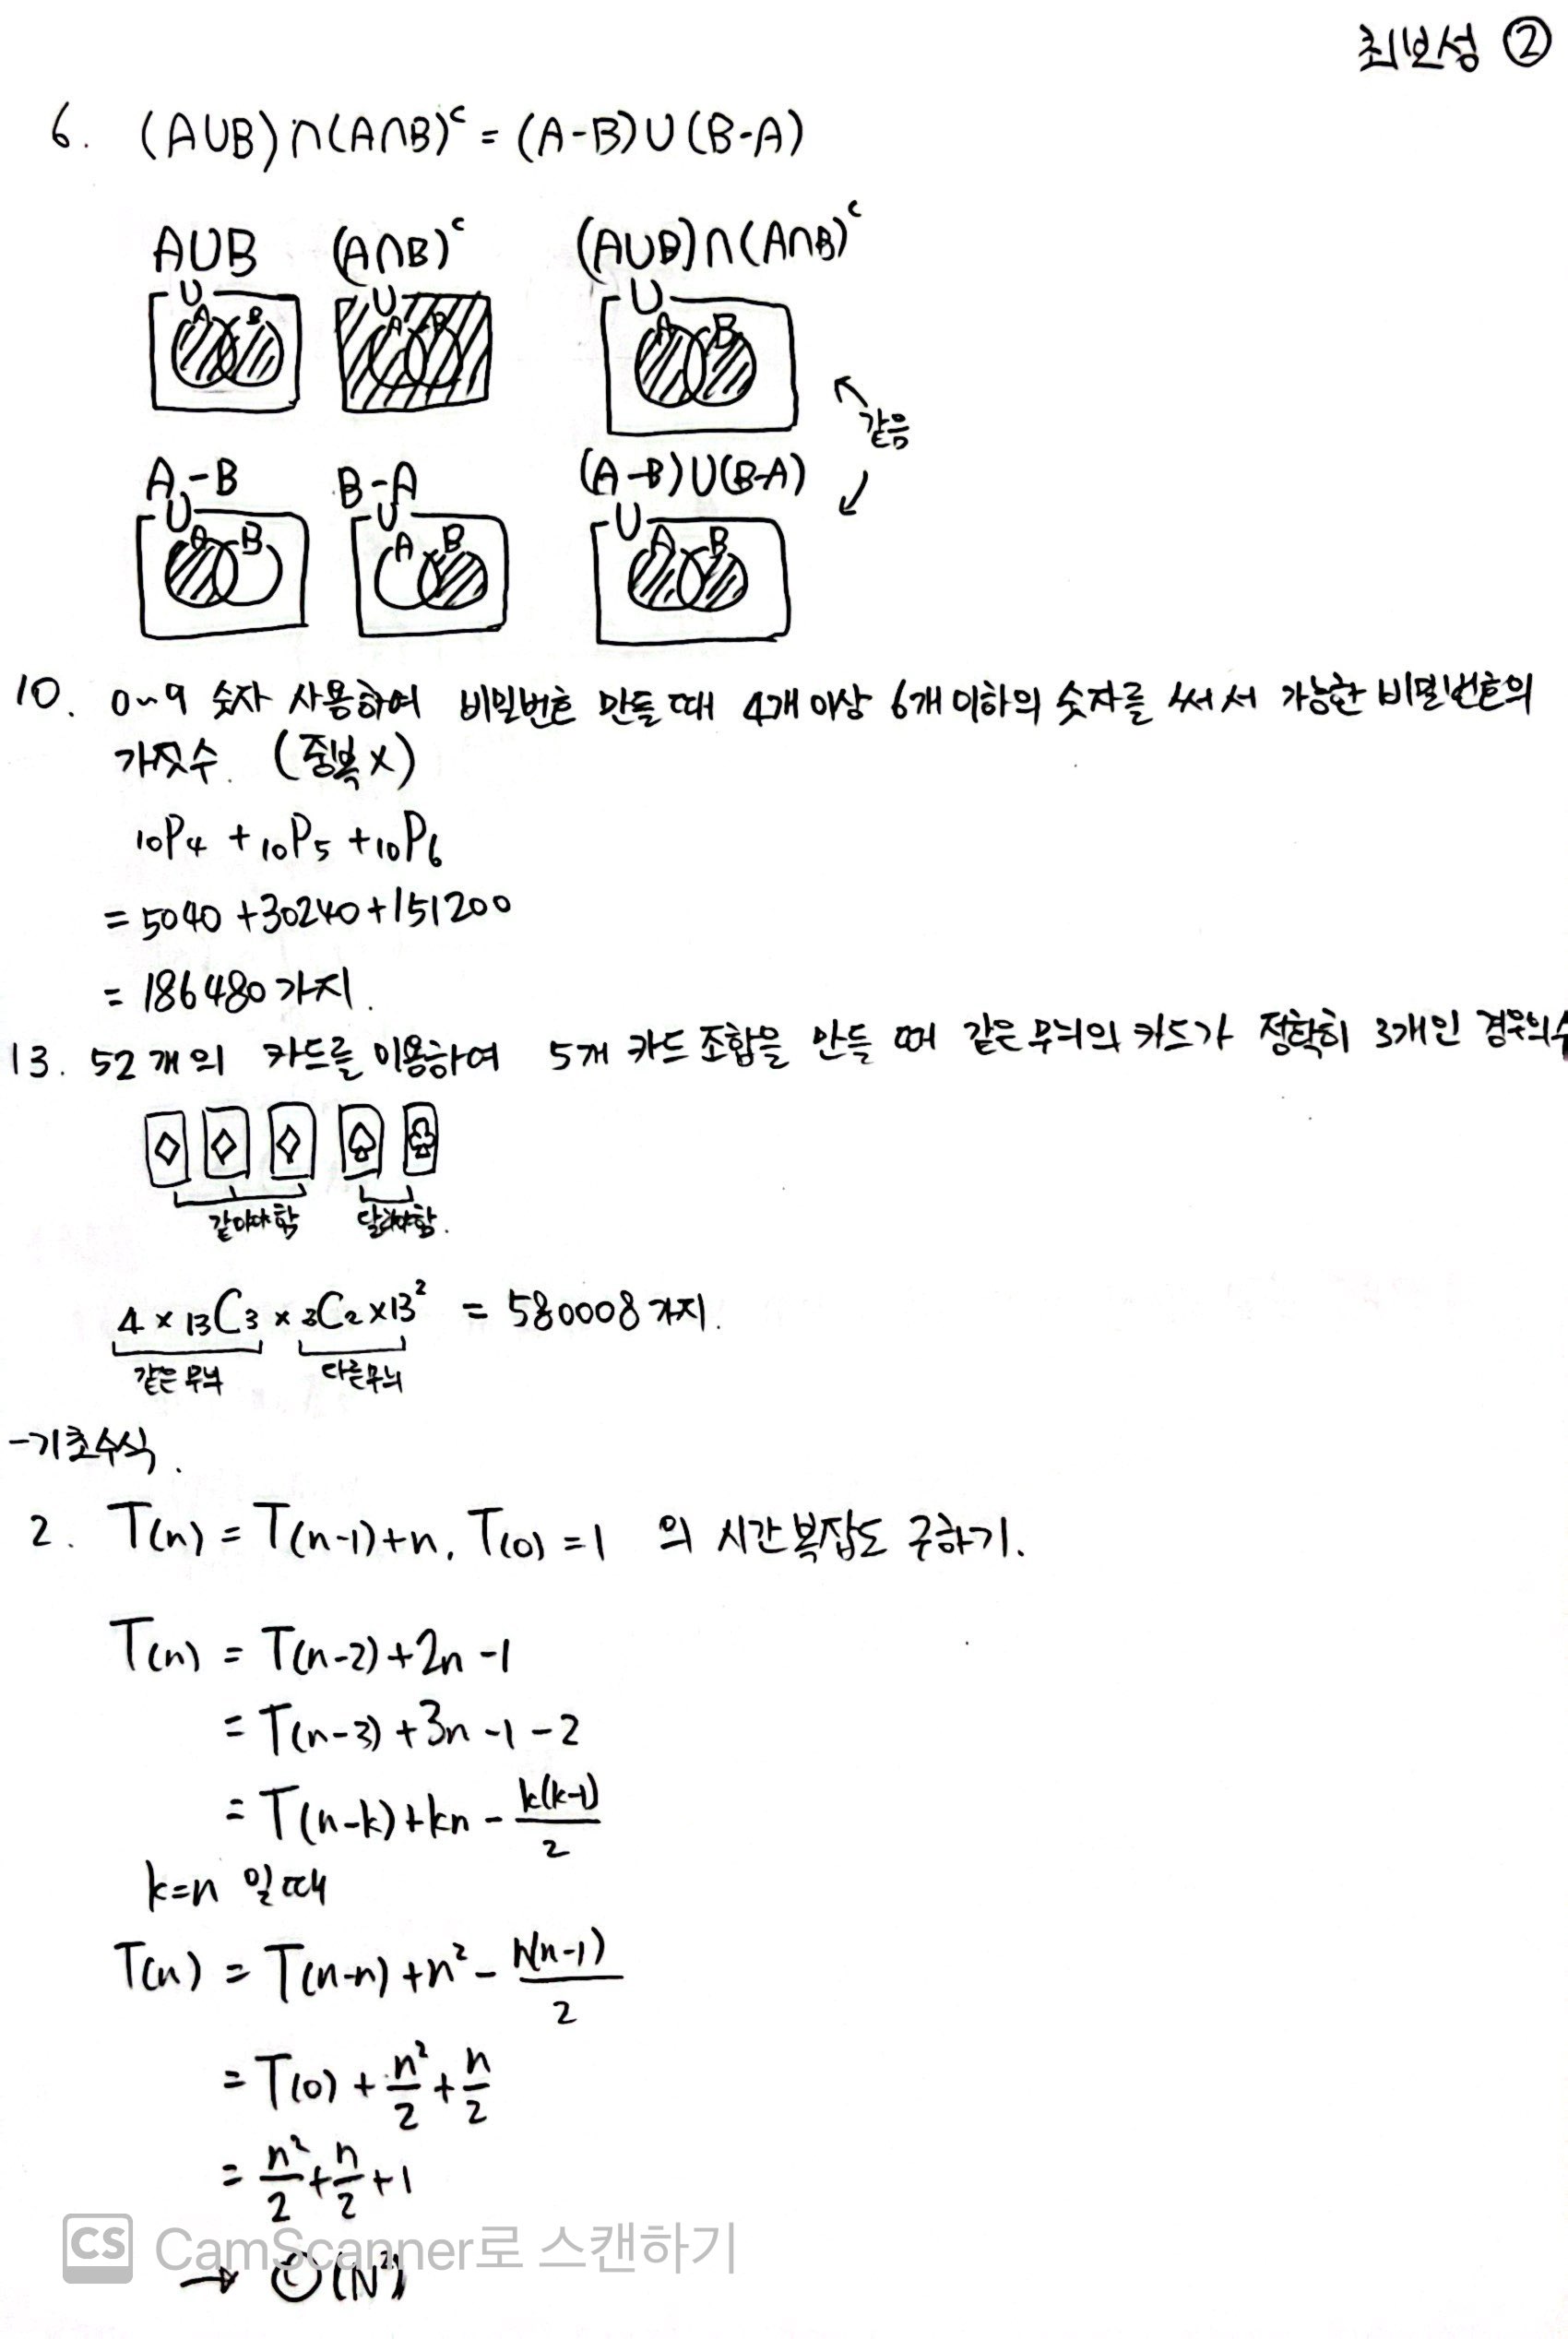 최보성 ②
6. (A∪B)∩(A∩B)ᶜ = (A-B)∪(B-A)
A∪B (A∩B)ᶜ (A∪B)∩(A∩B)ᶜ
U A B U A B U A B
같음
A-B B-A (A-B)∪(B-A)
U A B U A B U A B
10. 0~9 숫자 사용하여 비밀번호 만들 때 4개 이상 6개 이하의 숫자를 써서 가능한 비밀번호의
가짓수. (중복X)
₁₀P₄ + ₁₀P₅ + ₁₀P₆
= 5040 + 30240 + 151200
= 186480 가지.
13. 52개의 카드를 이용하여 5개 카드 조합을 만들 때 같은 무늬의 카드가 정확히 3개인 경우의 수
같아야 함 달라야 함.
4 × ₁₃C₃ × ₃C₂ × 13² = 580008 가지.
같은 무늬 다른 무늬
-기초수식.
2. T(n) = T(n-1)+n, T(0) = 1 의 시간복잡도 구하기.
T(n) = T(n-2)+2n-1
= T(n-3)+3n-1-2
= T(n-k)+kn - k(k-1)/2
k=n 일 때
T(n) = T(n-n)+n² - n(n-1)/2
= T(0) + n²/2 + n/2
= n²/2 + n/2 + 1
CS CamScanner로 스캔하기
→ O(N²)